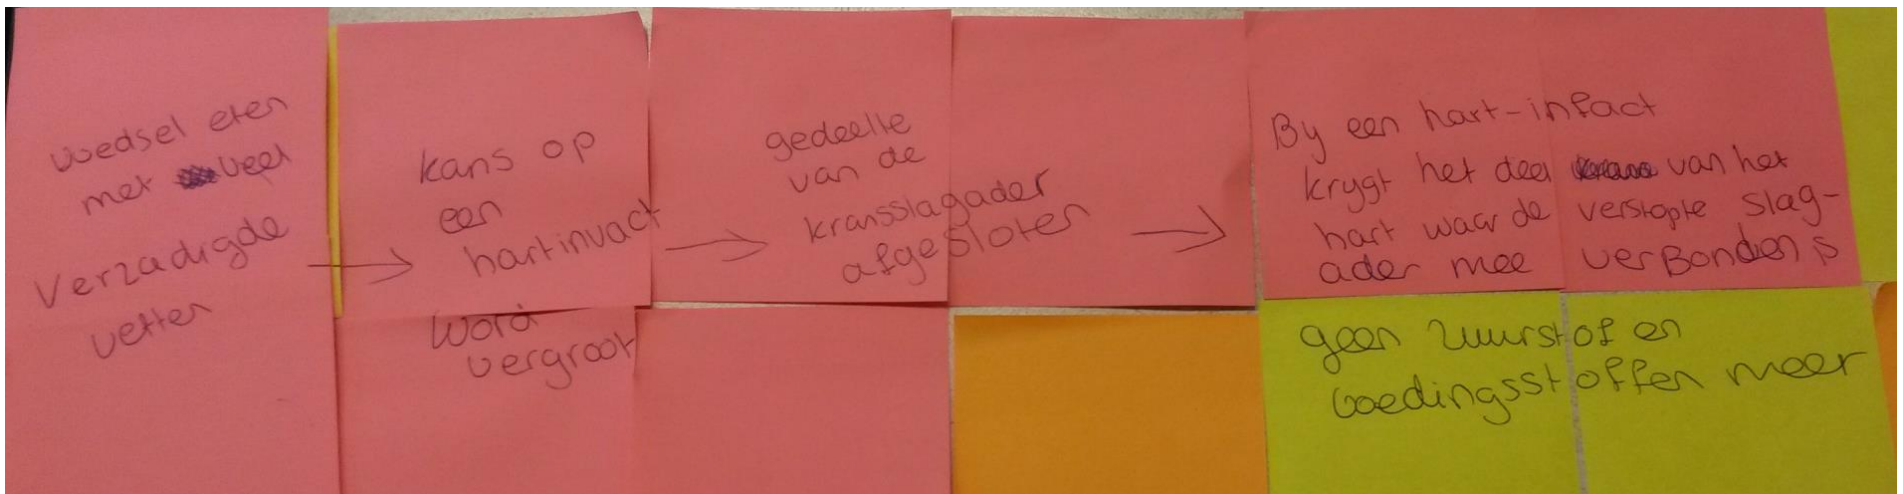 voedsel eten
met veel
verzadigde
vetten
→
kans op
een
hartinvact
word
vergroot
→
gedeelte
van de
kransslagader
afgesloten
→
By een hart-infact
krygt het deel van het
hart waar de verstopte slag-
ader mee verBonden is
geen zuurstof en
voedingsstoffen meer